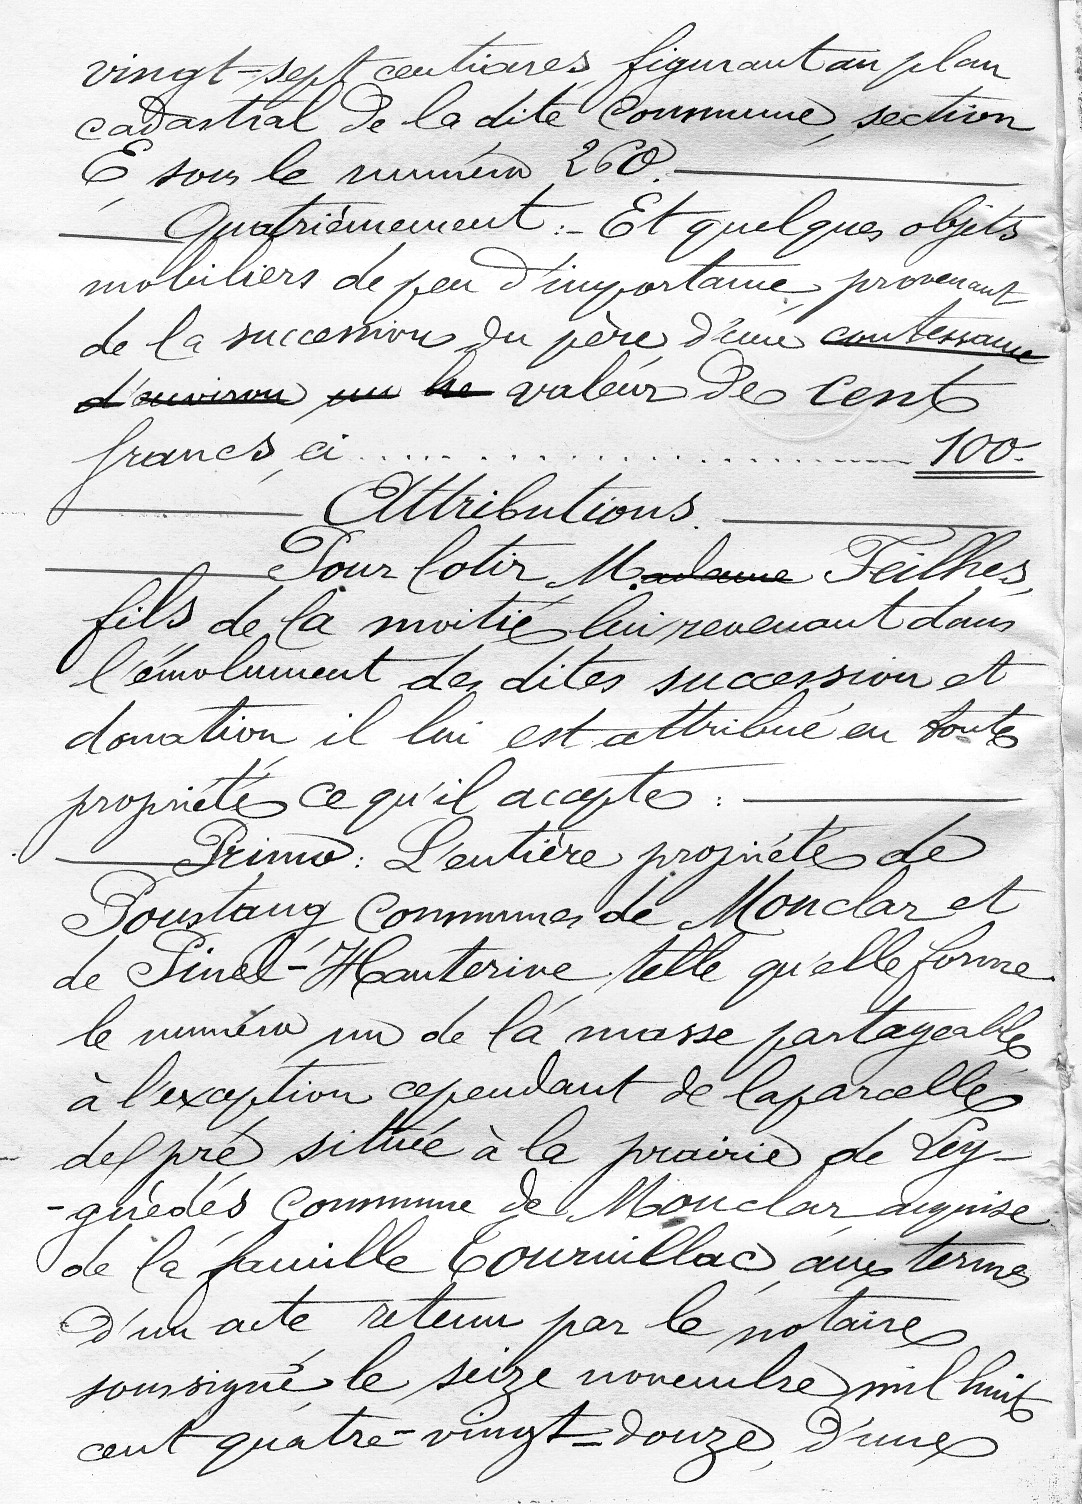 vingt-sept centiares, figurant au plan
cadastral de la dite commune, section
E sous le numéro 260.
Quatrièmement :- Et quelques objets
mobiliers de peu d'importance, provenant
de la succession du père d'une contenance
d'environ un he valeur de cent
francs, ci .......... 100.
Attributions.
Pour lotir Madame Feilhes,
fils de la moitié lui revenant dans
l'émolument des dites succession et
donation il lui est attribué en toute
propriété ce qu'il accepte :
Primo : L'entière propriété de
Poustang communes de Monclar et
de Pinel-Hauterive telle qu'elle forme
le numéro un de la masse partageable
à l'exception cependant de la parcelle
de pré située à la prairie de Ley-
-guèdés commune de Monclar acquise
de la famille Tournillac, aux termes
d'un acte retenu par le notaire
soussigné, le seize novembre mil huit
cent quatre-vingt-douze, d'une